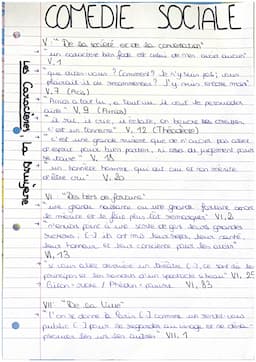 COMEDIE SOCIALE
Les Caractères, La Bruyère
V "De la société et de la conversation"
"un caractère bien fade est celui de n'en avoir aucun"
V.1
que dites-vous ? Comment ? Je n'y suis pas; vous
plairait-il de recommencer ? J'y suis encore moins"
V.7 (Acis)
"Arrias a tout lu, a tout vu, il veut le persuader
ainsi" V, 9 (Arrias)
il crie, il éclate, on bouche ses oreilles,
c'est un tonnerre" V, 12 (Théodecte)
"C'est une grande misère que de n'avoir pas assez
d'esprit pour bien parler, ni assez de jugement pour
se taire" V. 18
un honnête homme qui dit oui et non mérite
d'être cru" V, 20
VI "Des biens de fortune"
une grande naissance ou une grande fortune annonce
le mérite et le fait plus tôt remarquer" VI, 2
n'envions point à une sorte de gens leurs grandes
richesses (...) ils ont mis leur repos, leur santé,
leur honneur et leur conscience pour les avoir"
VI, 13
VI, 25
Giton: riche / Phédon: pauvre VI, 83
VII "De la Ville"
"l'on se donne à Paris (...) comme un rendez-vous
public (...) pour se regarder au visage et se désa-
prouver les uns les autres" VII, 1